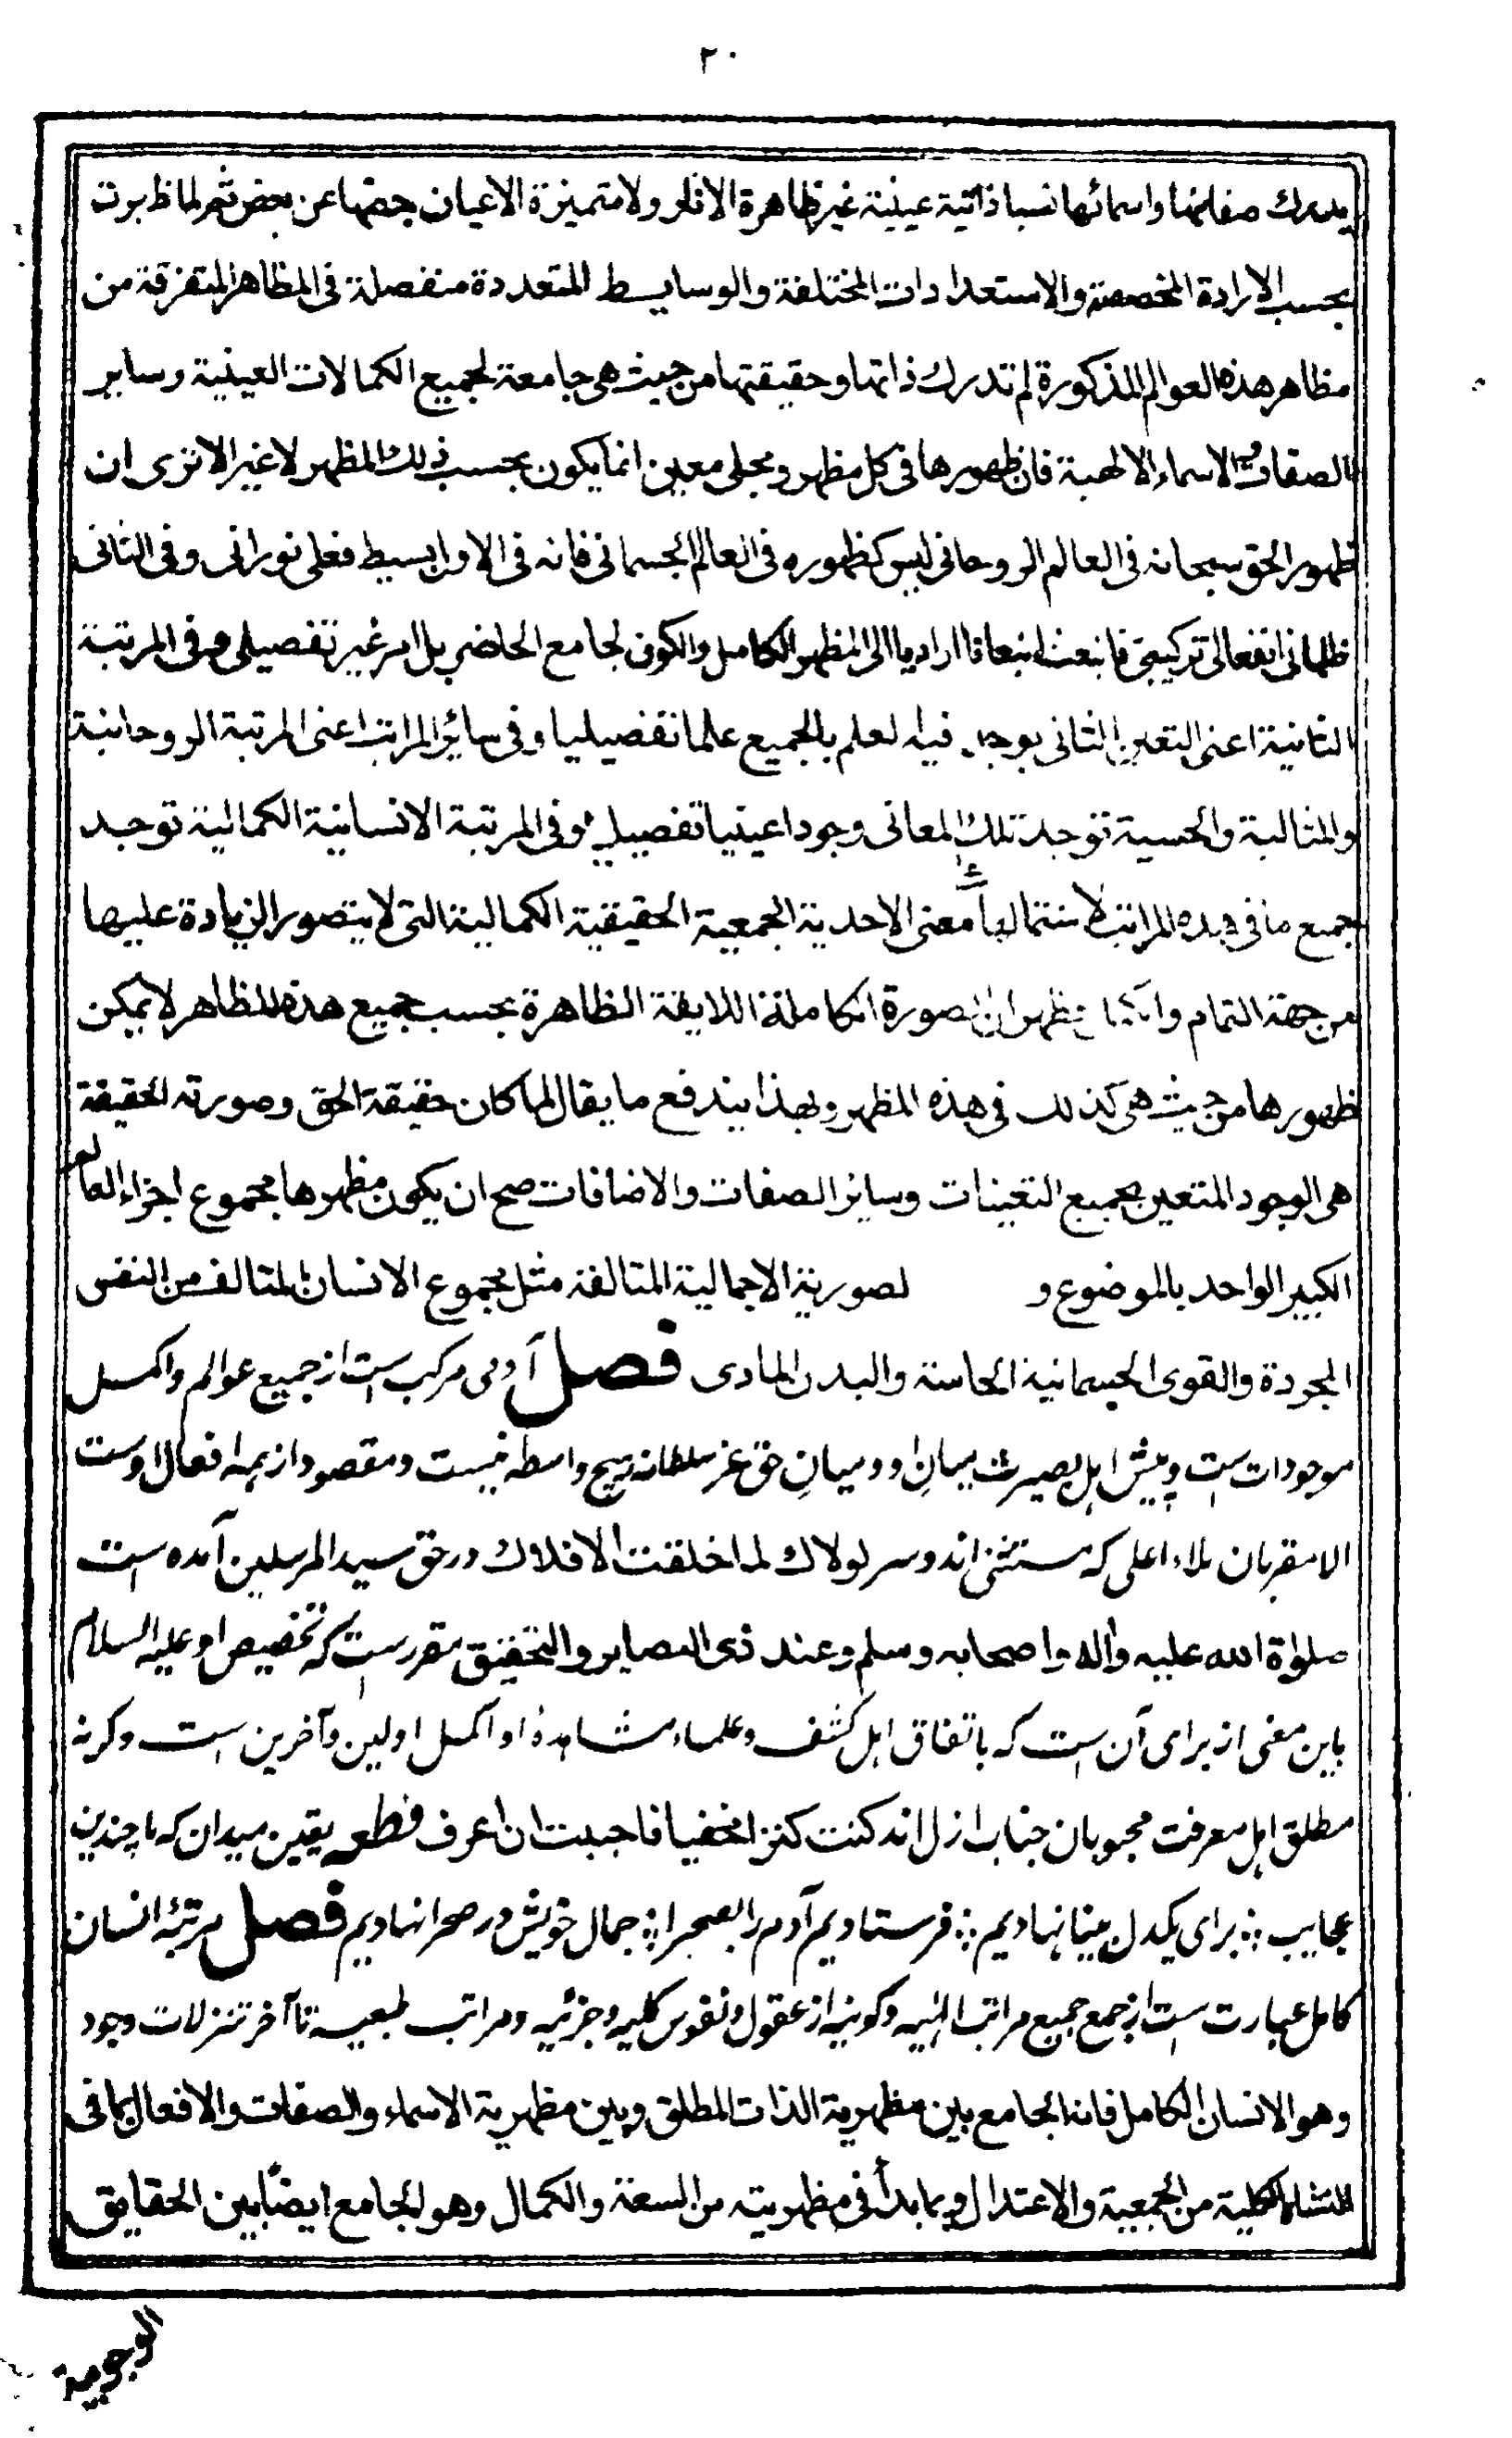 ٢٠
يدرك صفاتها واسمائها نسبا ذاتية عينية غير ظاهرة الاثار ولا متميزة الاعيان بعضها عن بعض ثم لما ظهرت
بحسب الارادة المخصصة والاستعدادات المختلفة والوسايط المتعددة منفصلة فى المظاهر المتفرقة من
مظاهر هذه العوالم المذكورة لم تدرك ذاتها وحقيقتها من حيث هى جامعة لجميع الكمالات العينية وساير
الصفات والاسماء الالهية فان ظهورها فى كل مظهر ومجلى معين انما يكون بحسب ذلك المظهر لا غير الا ترى ان
ظهور الحق سبحانه فى العالم الروحانى ليس كظهوره فى العالم الجسمانى فانه فى الاول بسيط فعلى نورانى وفى الثانى
ظلمانى انفعالى تركيبى فانبعث انبعاثا اراديا الى المظهر الكامل والكون الجامع الحاضر بل امر غير تفصيلى وفى المرتبة
الثانية اعنى التعين الثانى يوجد فيه لعلم بالجميع علما تفصيليا وفى سائر المراتب اعنى المرتبة الروحانية
والمثالية والحسية توجد تلك المعانى وجودا عينيا تفصيلي وفى المرتبة الانسانية الكمالية توجد
جميع ما فى هذه المراتب لاشتمالها معنى الاحدية الجمعية الحقيقية الكمالية التى لا يتصور الزيادة عليها
من جهة التمام و تظهر ان الصورة الكاملة اللايقة الظاهرة بحسب جميع هذه المظاهر لا يمكن
ظهورها من حيث هى كذلك فى هذه المظهر وبهذا يندفع ما يقال لما كان حقيقة الحق وصورته الحقيقة
هى الوجود المتعين بجميع التعينات وساير الصفات والاضافات صح ان يكون مظهرها مجموع اجزاء العالم
الكبير الواحد بالموضوع و لصورية الاجمالية المتالفة مثل مجموع الانسان المتالف من النفس
المجردة والقوى الجسمانية الحاسة والبدن المادى فصل آدمى مركب ست از جميع عوالم واكمل
موجودات ست وپيش اہل بصيرت ميان او وميان حق عز سلطانه ہيچ واسطه نيست ومقصود از ہمه افعال اوست
الا مقربان ملاء اعلى كه مستثنى اند وسر لولاك لما خلقت الافلاك در حق سيد المرسلين آمده ست
صلوٰة الله عليه واٰله واصحابه وسلم وعند ذى البصاير والتحقيق مقررست كه تخصيص او عليه السلام
باين معنى از براى آن ست كه باتفاق اہل كشف وعلماء مشاہدهٔ او اكمل اولين وآخرين ست وگرنه
مطلق اہل معرفت محبوبان جناب ازل اند كنت كنزا مخفيا فاحببت ان اعرف قطعه يقين ميدان كه با چندين
عجايب ؞ براى يكدل بينا نہاديم ؞ فرستاديم آدم را بصحرا ؞ جمال خويش در صحرا نهاديم فصل مرتبهٔ انسان
كامل عبارت ست از جمع جميع مراتب الٰہيه وكونيه از عقول ونفوس كليه وجزئيه ومراتب طبعيه تا آخر تنزلات وجود
وهو الانسان الكامل فانه الجامع بين مظهرية الذات المطلق وبين مظهرية الاسماء والصفات والافعال بما فى
النشاة الكلية من الجمعية والاعتدال وبما بدأ فى مظهريته من السعة والكمال وهو الجامع ايضًا بين الحقايق
الوجوبية